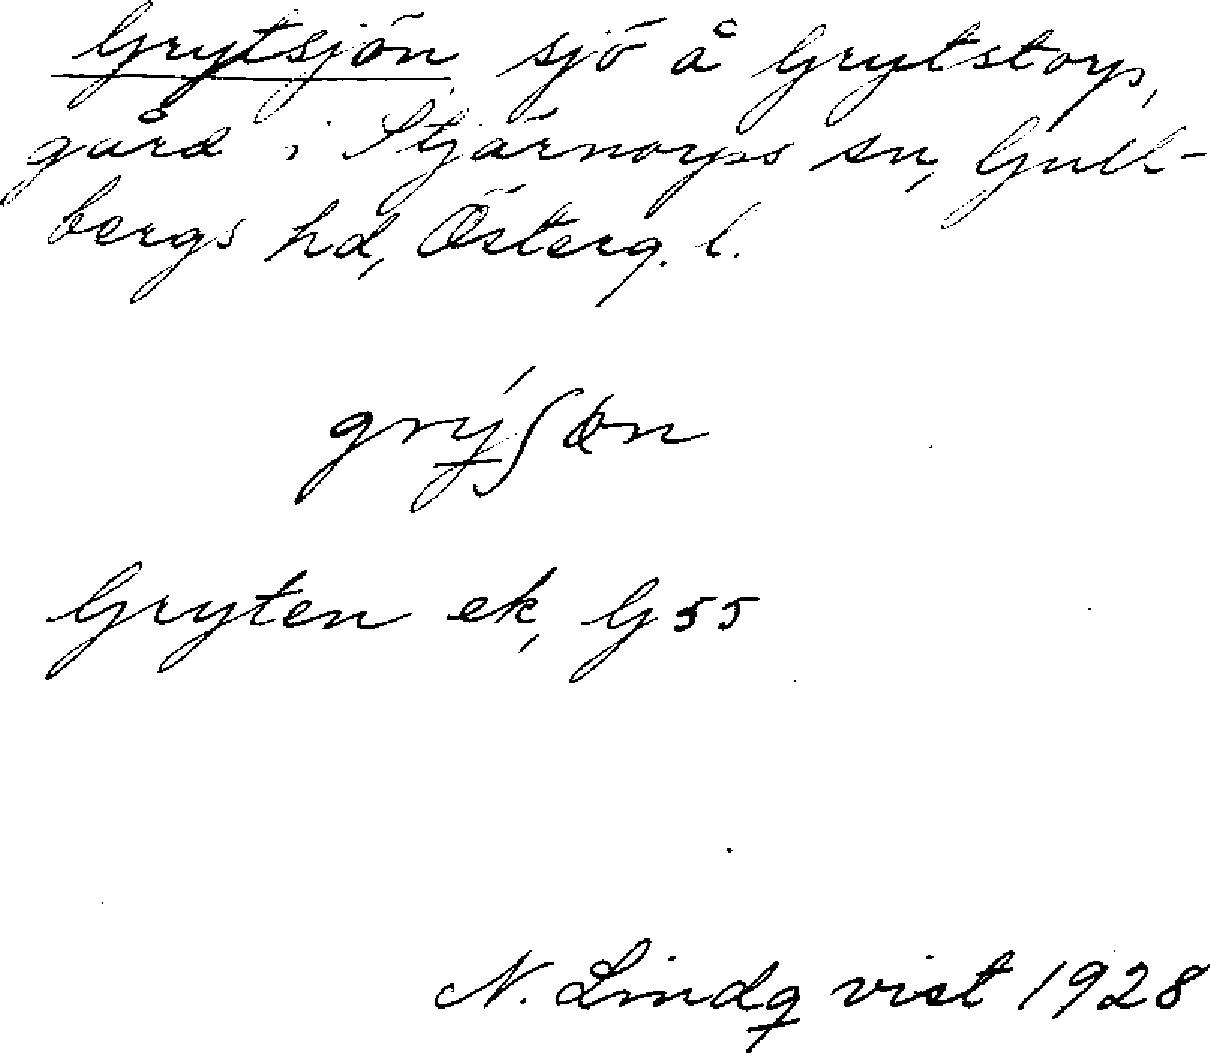 Grytsjön, sjö å Grytstorp,
gård i Stjärnorps sn, Gull-
bergs hd, Österg. l.
grýʃøn
Gryten ek, G 55
N. Lindqvist 1928